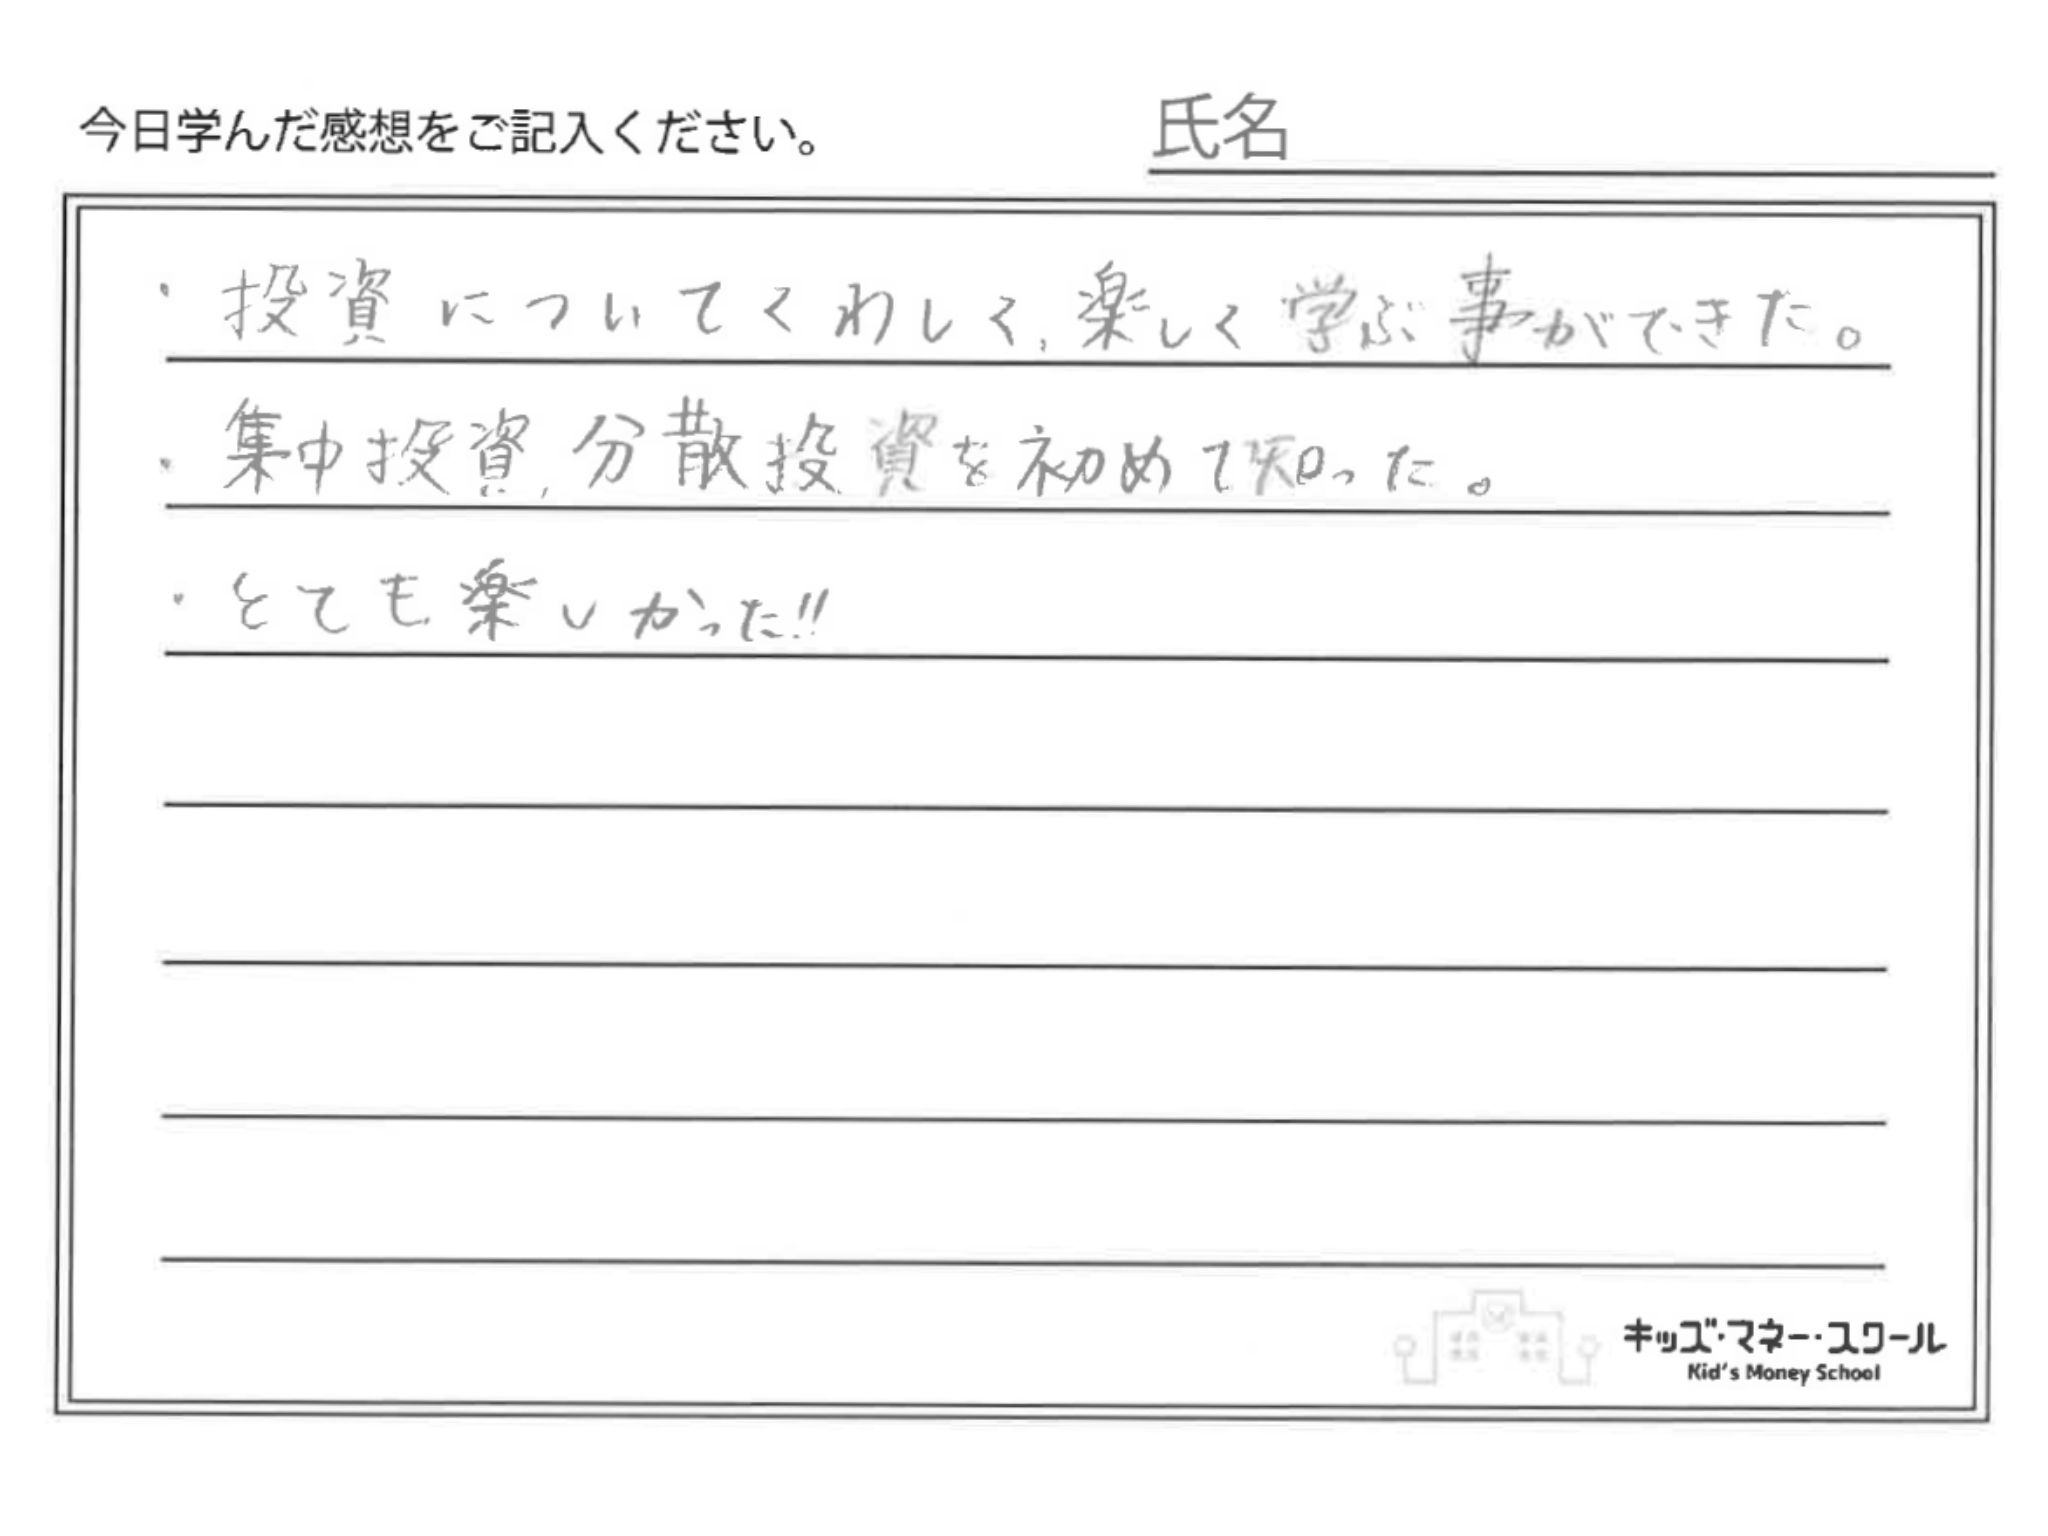 今日学んだ感想をご記入ください。 氏名
・投資についてくわしく、楽しく学ぶ事ができた。
・集中投資、分散投資を初めて知った。
・とても楽しかった!!
キッズ・マネー・スクール
Kid's Money School